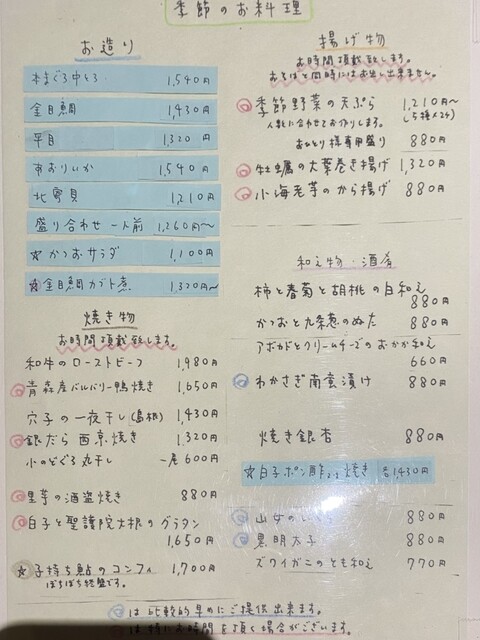 季節のお料理
お造り
本まぐろ中とろ 1,540円
金目鯛 1,430円
平目 1,320円
あおりいか 1,540円
北寄貝 1,210円
盛り合わせ一人前 1,260円〜
☆かつおサラダ 1,100円
☆金目鯛カブト煮 1,320円〜
焼き物
お時間頂戴致します。
和牛のローストビーフ 1,980円
青森産バルバリー鴨焼き 1,650円
穴子の一夜干し(島根) 1,430円
銀だら西京焼き 1,320円
小のどぐろ丸干し 一尾600円
里芋の酒盗焼き 880円
白子と聖護院大根のグラタン
1,650円
☆子持ち鮎のコンフィ 1,700円
ぼちぼち終盤です。
揚げ物
お時間頂戴致します。
おそばと同時にはお出し出来ません。
季節野菜の天ぷら 1,210円〜
人数に合わせてお作りします。
おひとり様専用盛り 880円
牡蠣の大葉巻き揚げ 1,320円
小海老芋のから揚げ 880円
和え物・酒肴
柿と春菊と胡桃の白和え
880円
かつおと九条葱のぬた 880円
アボカドとクリームチーズのおかか和え
660円
わかさぎ南蛮漬け 880円
焼き銀杏 880円
☆白子ポン酢 焼き 各1,430円
880円
黒明太子 880円
ズワイガニのとも和え 770円
は比較的早めにご提供出来ます。
は特にお時間を頂く場合がございます。